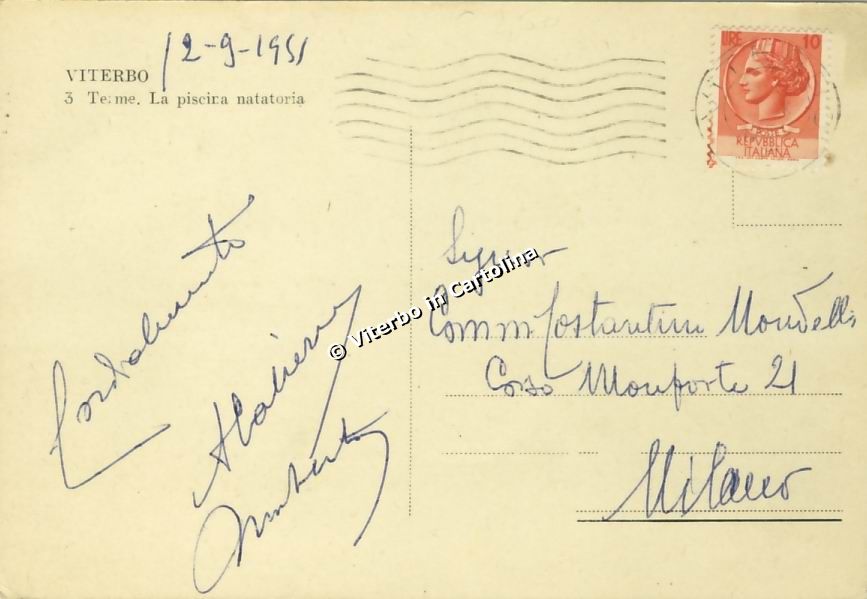 VITERBO
12-9-1951
3 Terme. La piscina natatoria
LIRE 10
REPVBBLICA
ITALIANA
Cordialmente
Umberto
© Viterbo in Cartolina
Signor
Comm Costantino Mondelli
Corso Monforte 21
Milano